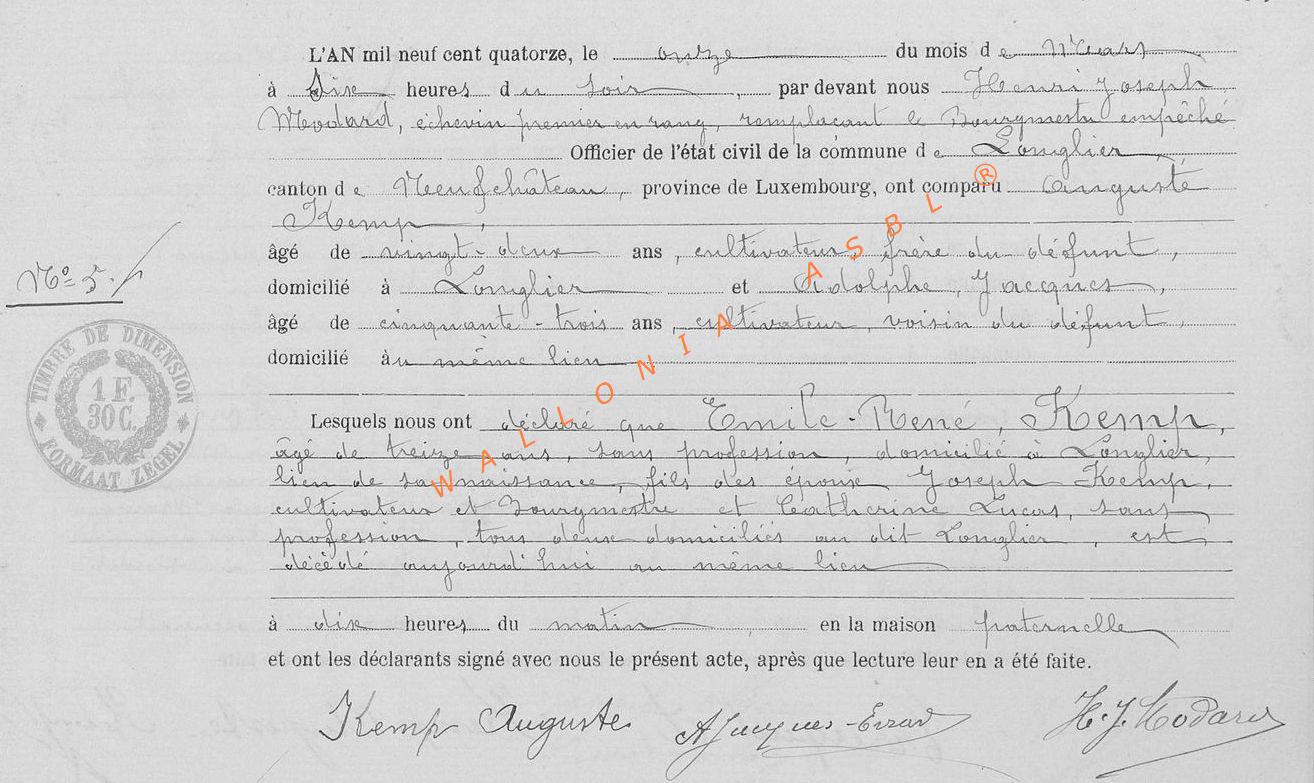 L'AN mil neuf cent quatorze, le onze du mois de Mars
à six heures du soir, par devant nous Henri Joseph
Modard, échevin premier en rang, remplaçant le Bourgmestre empêché
Officier de l'état civil de la commune de Longlier,
canton de Neufchâteau, province de Luxembourg, ont comparu Auguste
Kemp,
âgé de vingt-deux ans, cultivateur, frère du défunt,
domicilié à Longlier et Adolphe, Jacques,
âgé de cinquante-trois ans, cultivateur, voisin du défunt,
domicilié au même lieu
Nº 5.
TIMBRE DE DIMENSION
1 F.
30 C.
FORMAAT ZEGEL
Lesquels nous ont déclaré que Emile-René, Kemp,
âgé de treize ans, sans profession, domicilié à Longlier,
lieu de sa naissance, fils des époux Joseph Kemp,
cultivateur et Bourgmestre et Catherine Lucas, sans
profession, tous deux domiciliés au dit Longlier, est
décédé aujourd'hui au même lieu
à dix heures du matin en la maison paternelle
et ont les déclarants signé avec nous le présent acte, après que lecture leur en a été faite.
Kemp Auguste AJacques- H.J. Modard
WALLONIA ASBL ®